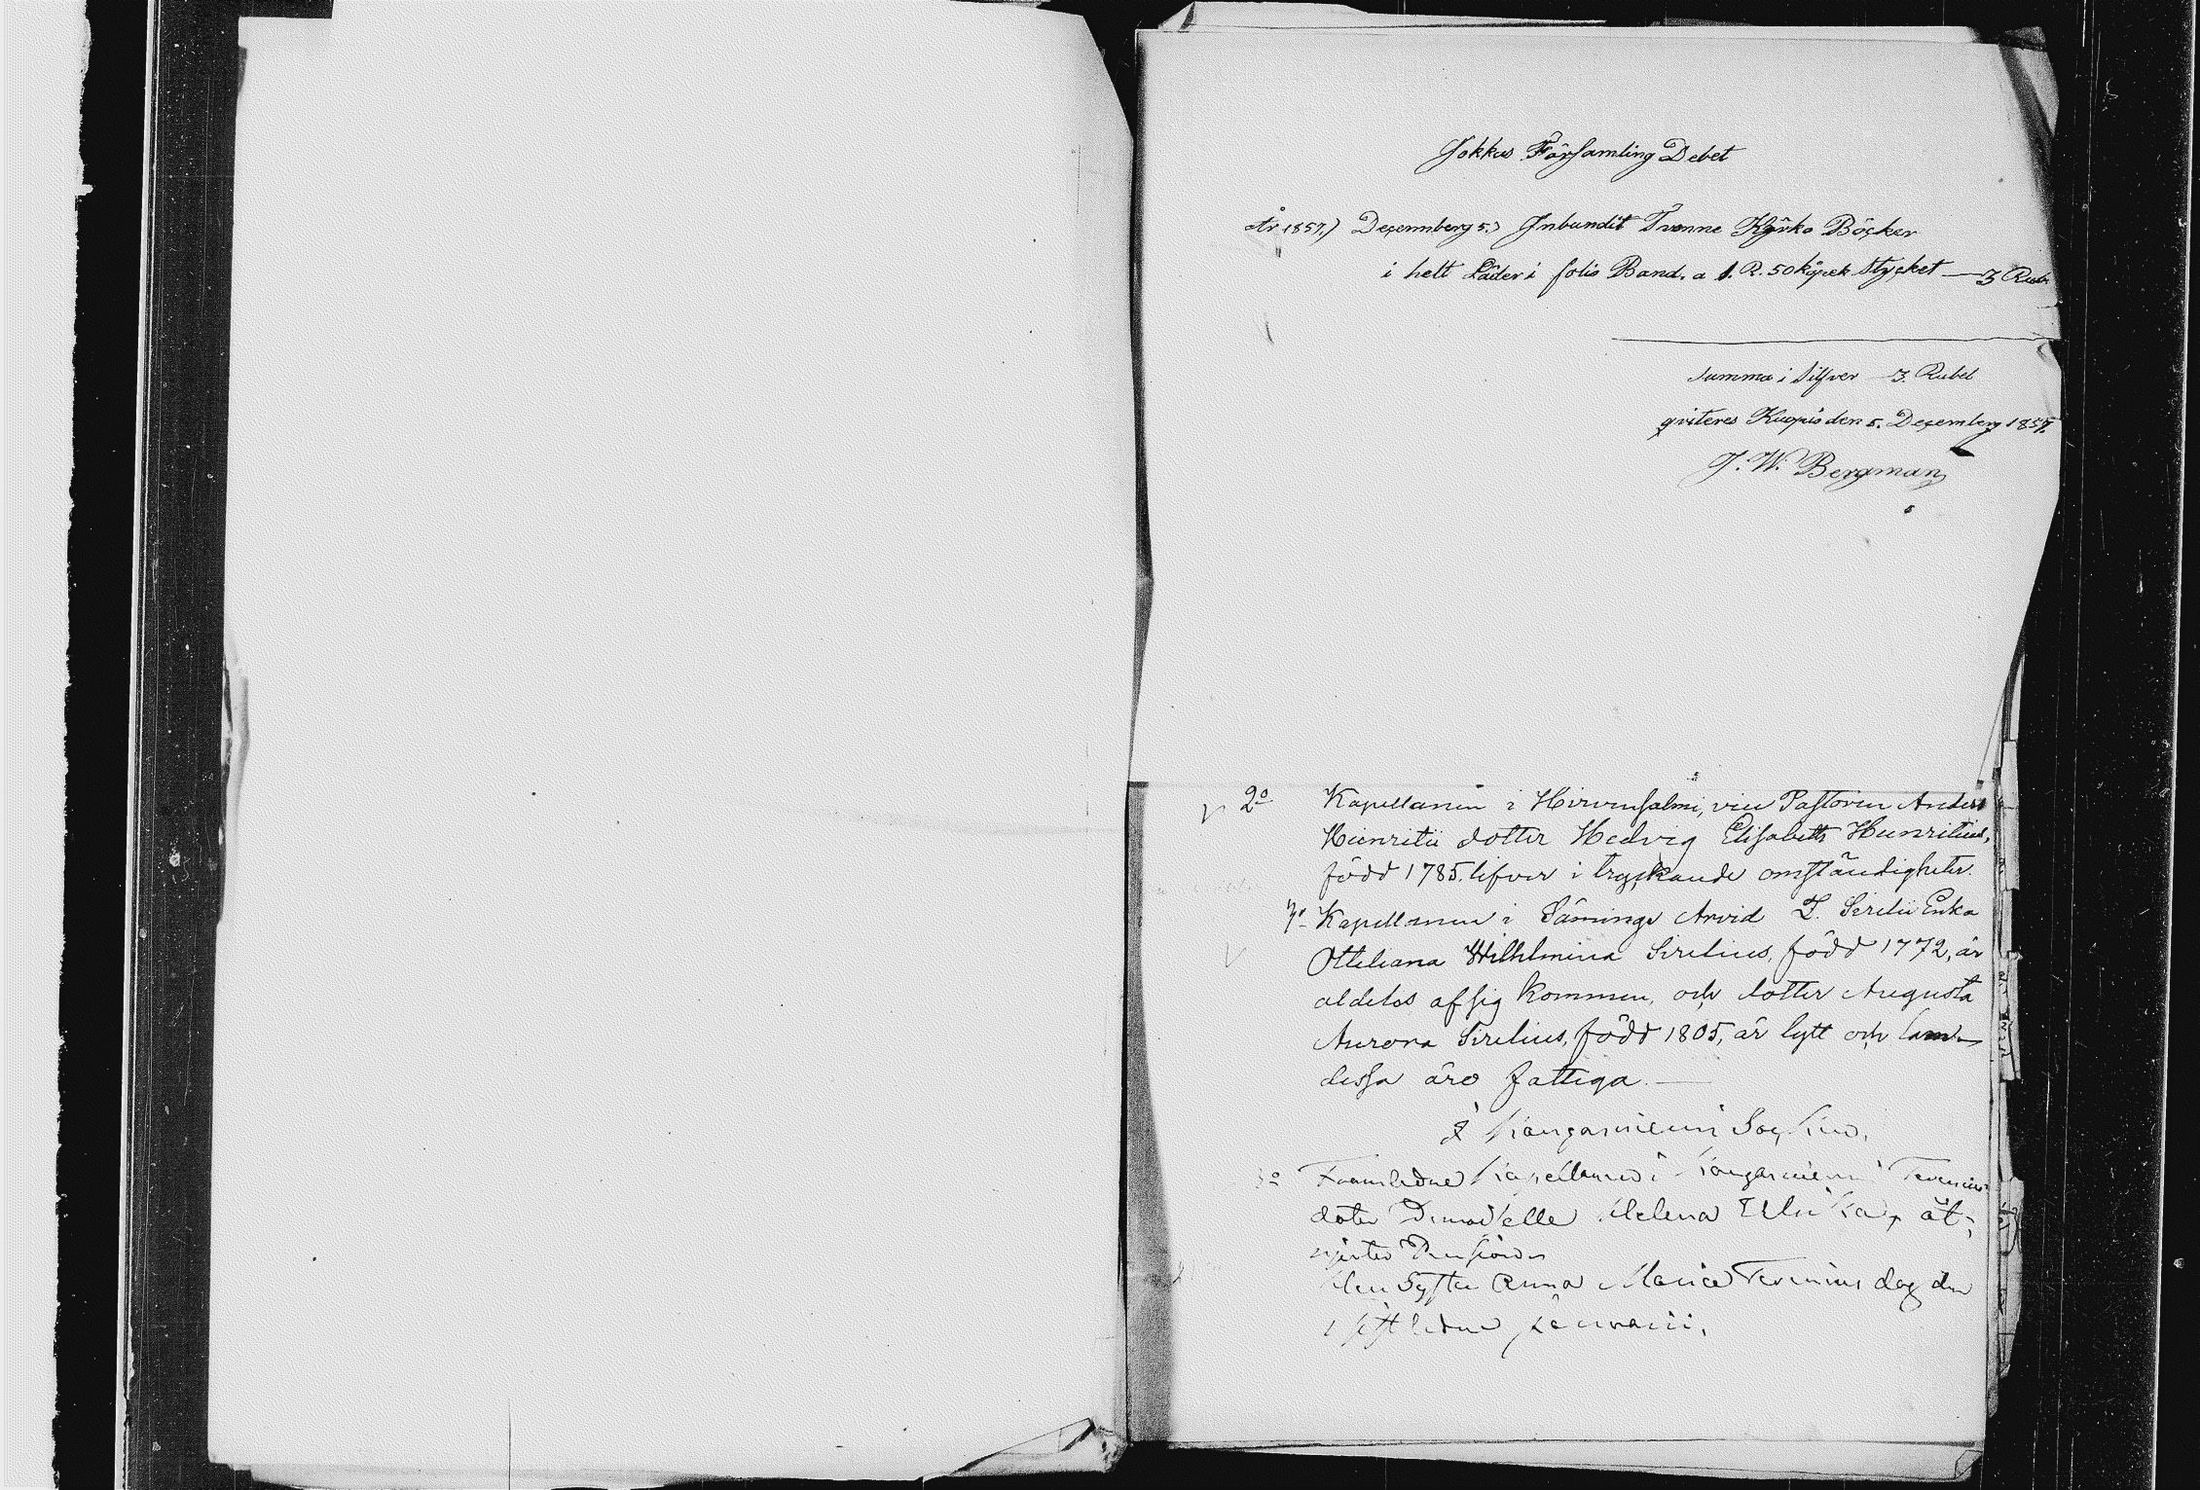 Jokkas Församling Debet
År 1857.) Deçemberg 5.) Jnbundit Tvenne Kyrko Böçker
i helt Läder i folio Band. a 1. R. 50 kopek Styçket — 3 Rub
Summa i Silfver — 3. Rubel
qviteres Kuopio den 5. Deçemberg 1857.
J. W. Bergman
2o Kapellanen i Hirvensalmi, vice Pastoren Anders
Heinritii dotter Hedvig Elisabeth Heinritius,
född 1785. lefver i tryckande omständigheter.
Kapellanen i Säminge Arvid Z. Sirelii Enka
Otteliana Wilhelmina Sirelius, född 1772, är
aldeles af sig kommen, och dotter Augusta
Aurora Sirelius, född 1805, är lytt och lam
dessa äro fattiga. —
I Kangasniemi Soçken.
3o Framledne Kapellanen i Kangasniemi
doter Demoiselle Helena Ulrika, åt-
njuter Pension
Anna Maria dog den
i sistledne januarii.